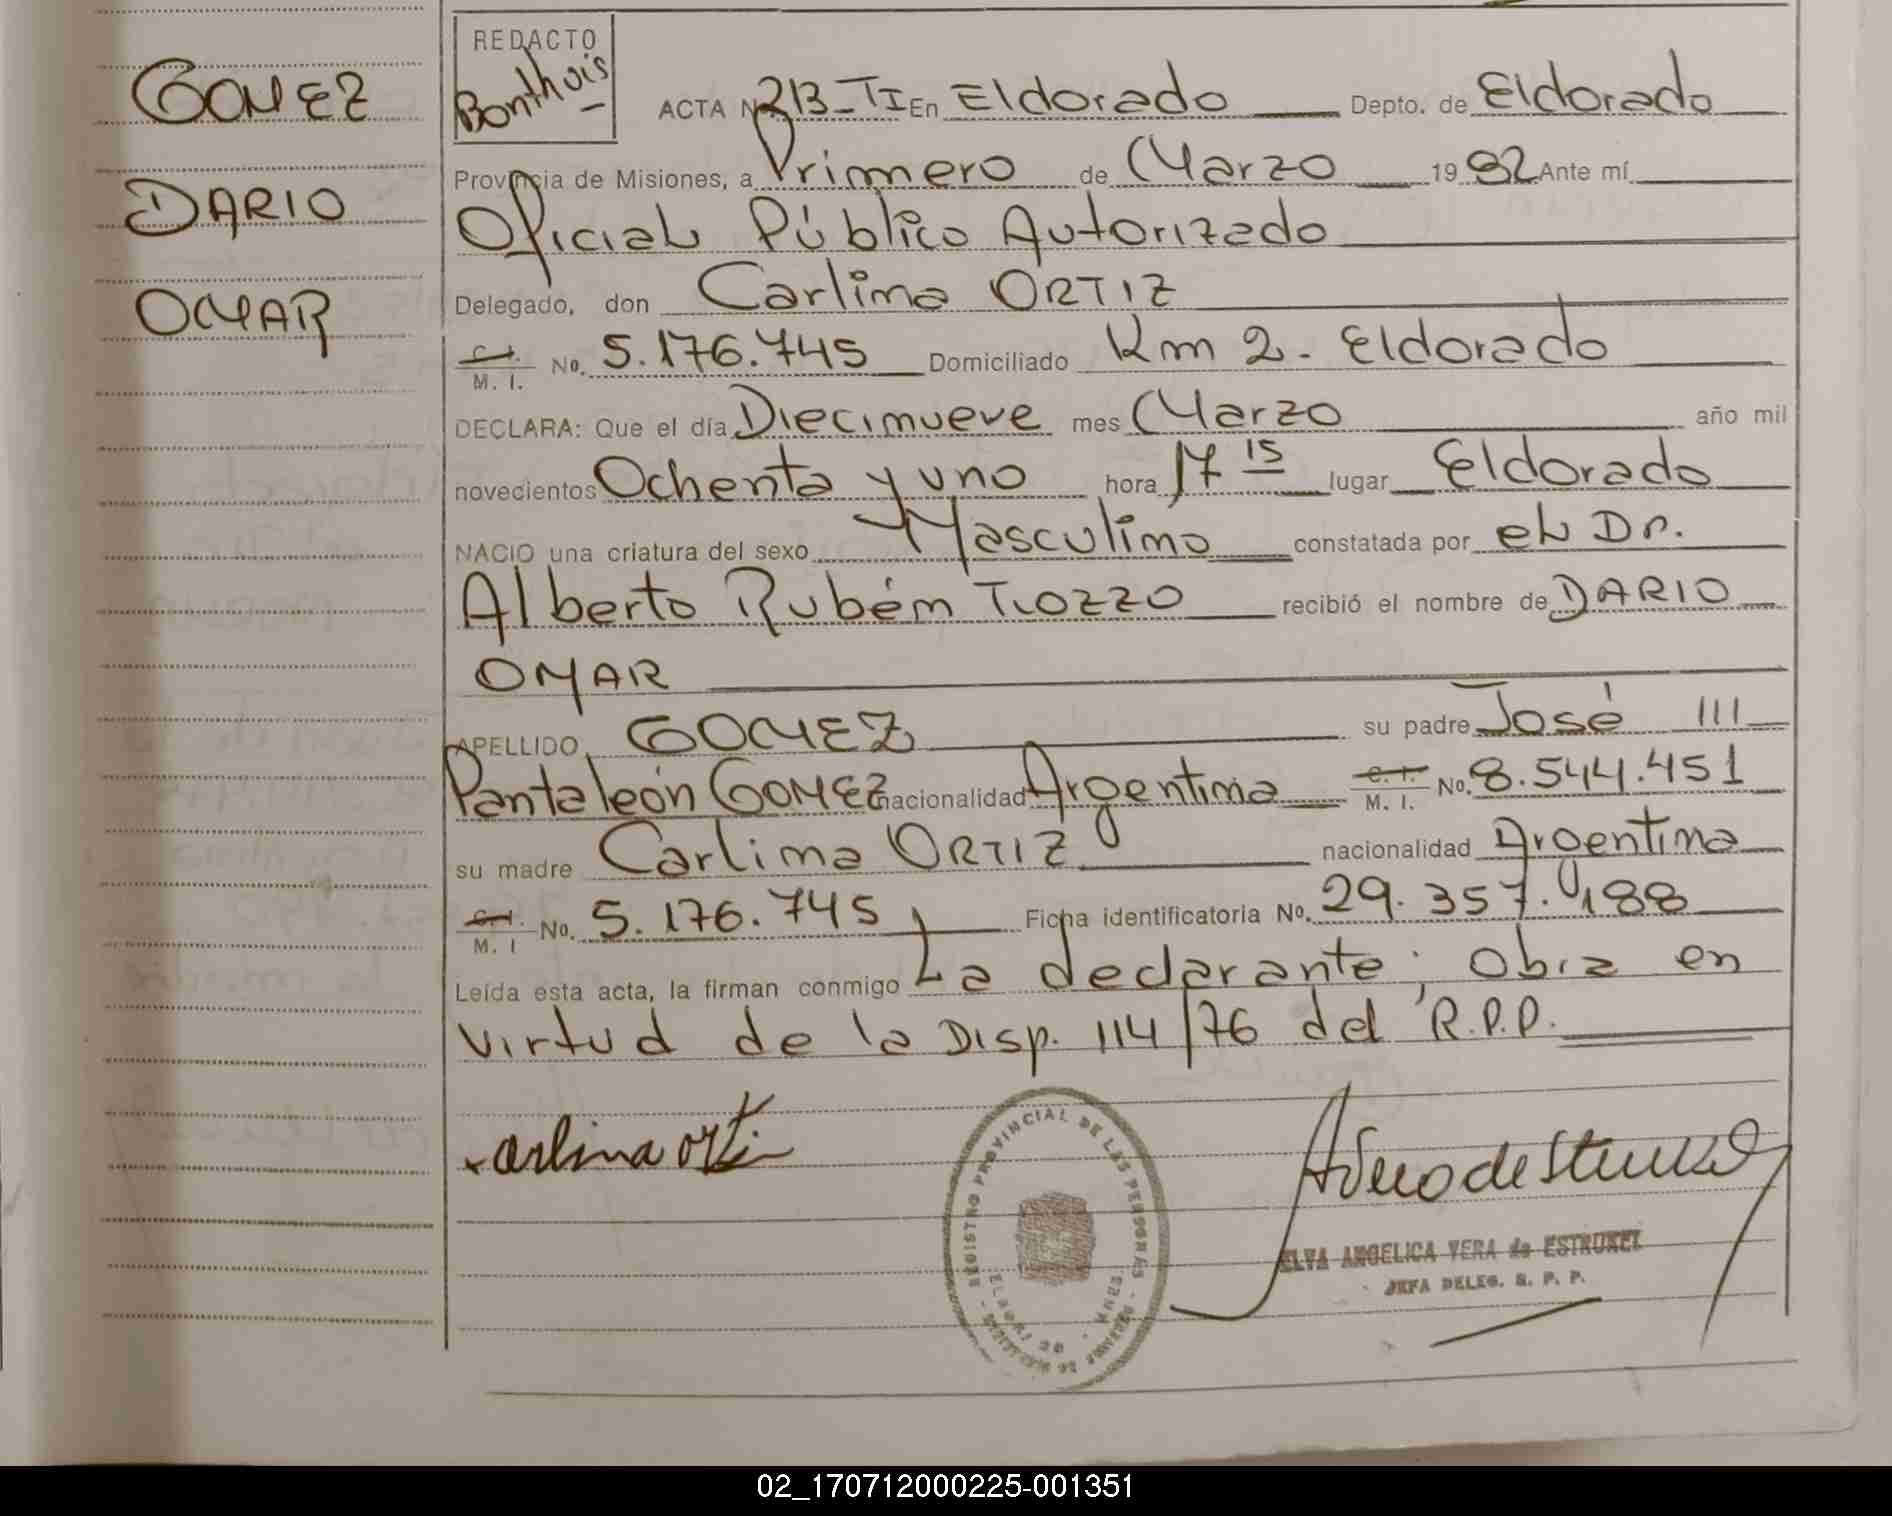 GOMEZ
DARIO
OMAR
REDACTO
Bonthuis
ACTA Nº 213-TI En Eldorado Depto. de Eldorado
Provincia de Misiones, a Primero de Marzo 1982 Ante mí
Oficial Público Autorizado
Delegado, don Carlina ORTIZ
C.I. M. I. No. 5.176.745 Domiciliado Km 2 - Eldorado
DECLARA: Que el día Diecinueve mes Marzo año mil
novecientos Ochenta y uno hora 17 15 lugar Eldorado
NACIO una criatura del sexo Masculino constatada por el Dr.
Alberto Rubén TIOZZO recibió el nombre de DARIO
OMAR
APELLIDO GOMEZ su padre José
Pantaleón GOMEZ nacionalidad Argentina C.I. M. I. No. 8.544.451
su madre Carlina ORTIZ nacionalidad Argentina
C.I. M. I No. 5.176.745 Ficha identificatoria No. 29.357.188
Leída esta acta, la firman conmigo La declarante; Obra en
virtud de la Disp. 114/76 del R.P.P.
Carlina orti
REGISTRO PROVINCIAL DE LAS PERSONAS
ELVA ANGELICA VERA de ESTRUKEL
JEFA DELEG. R. P. P.
02_170712000225-001351